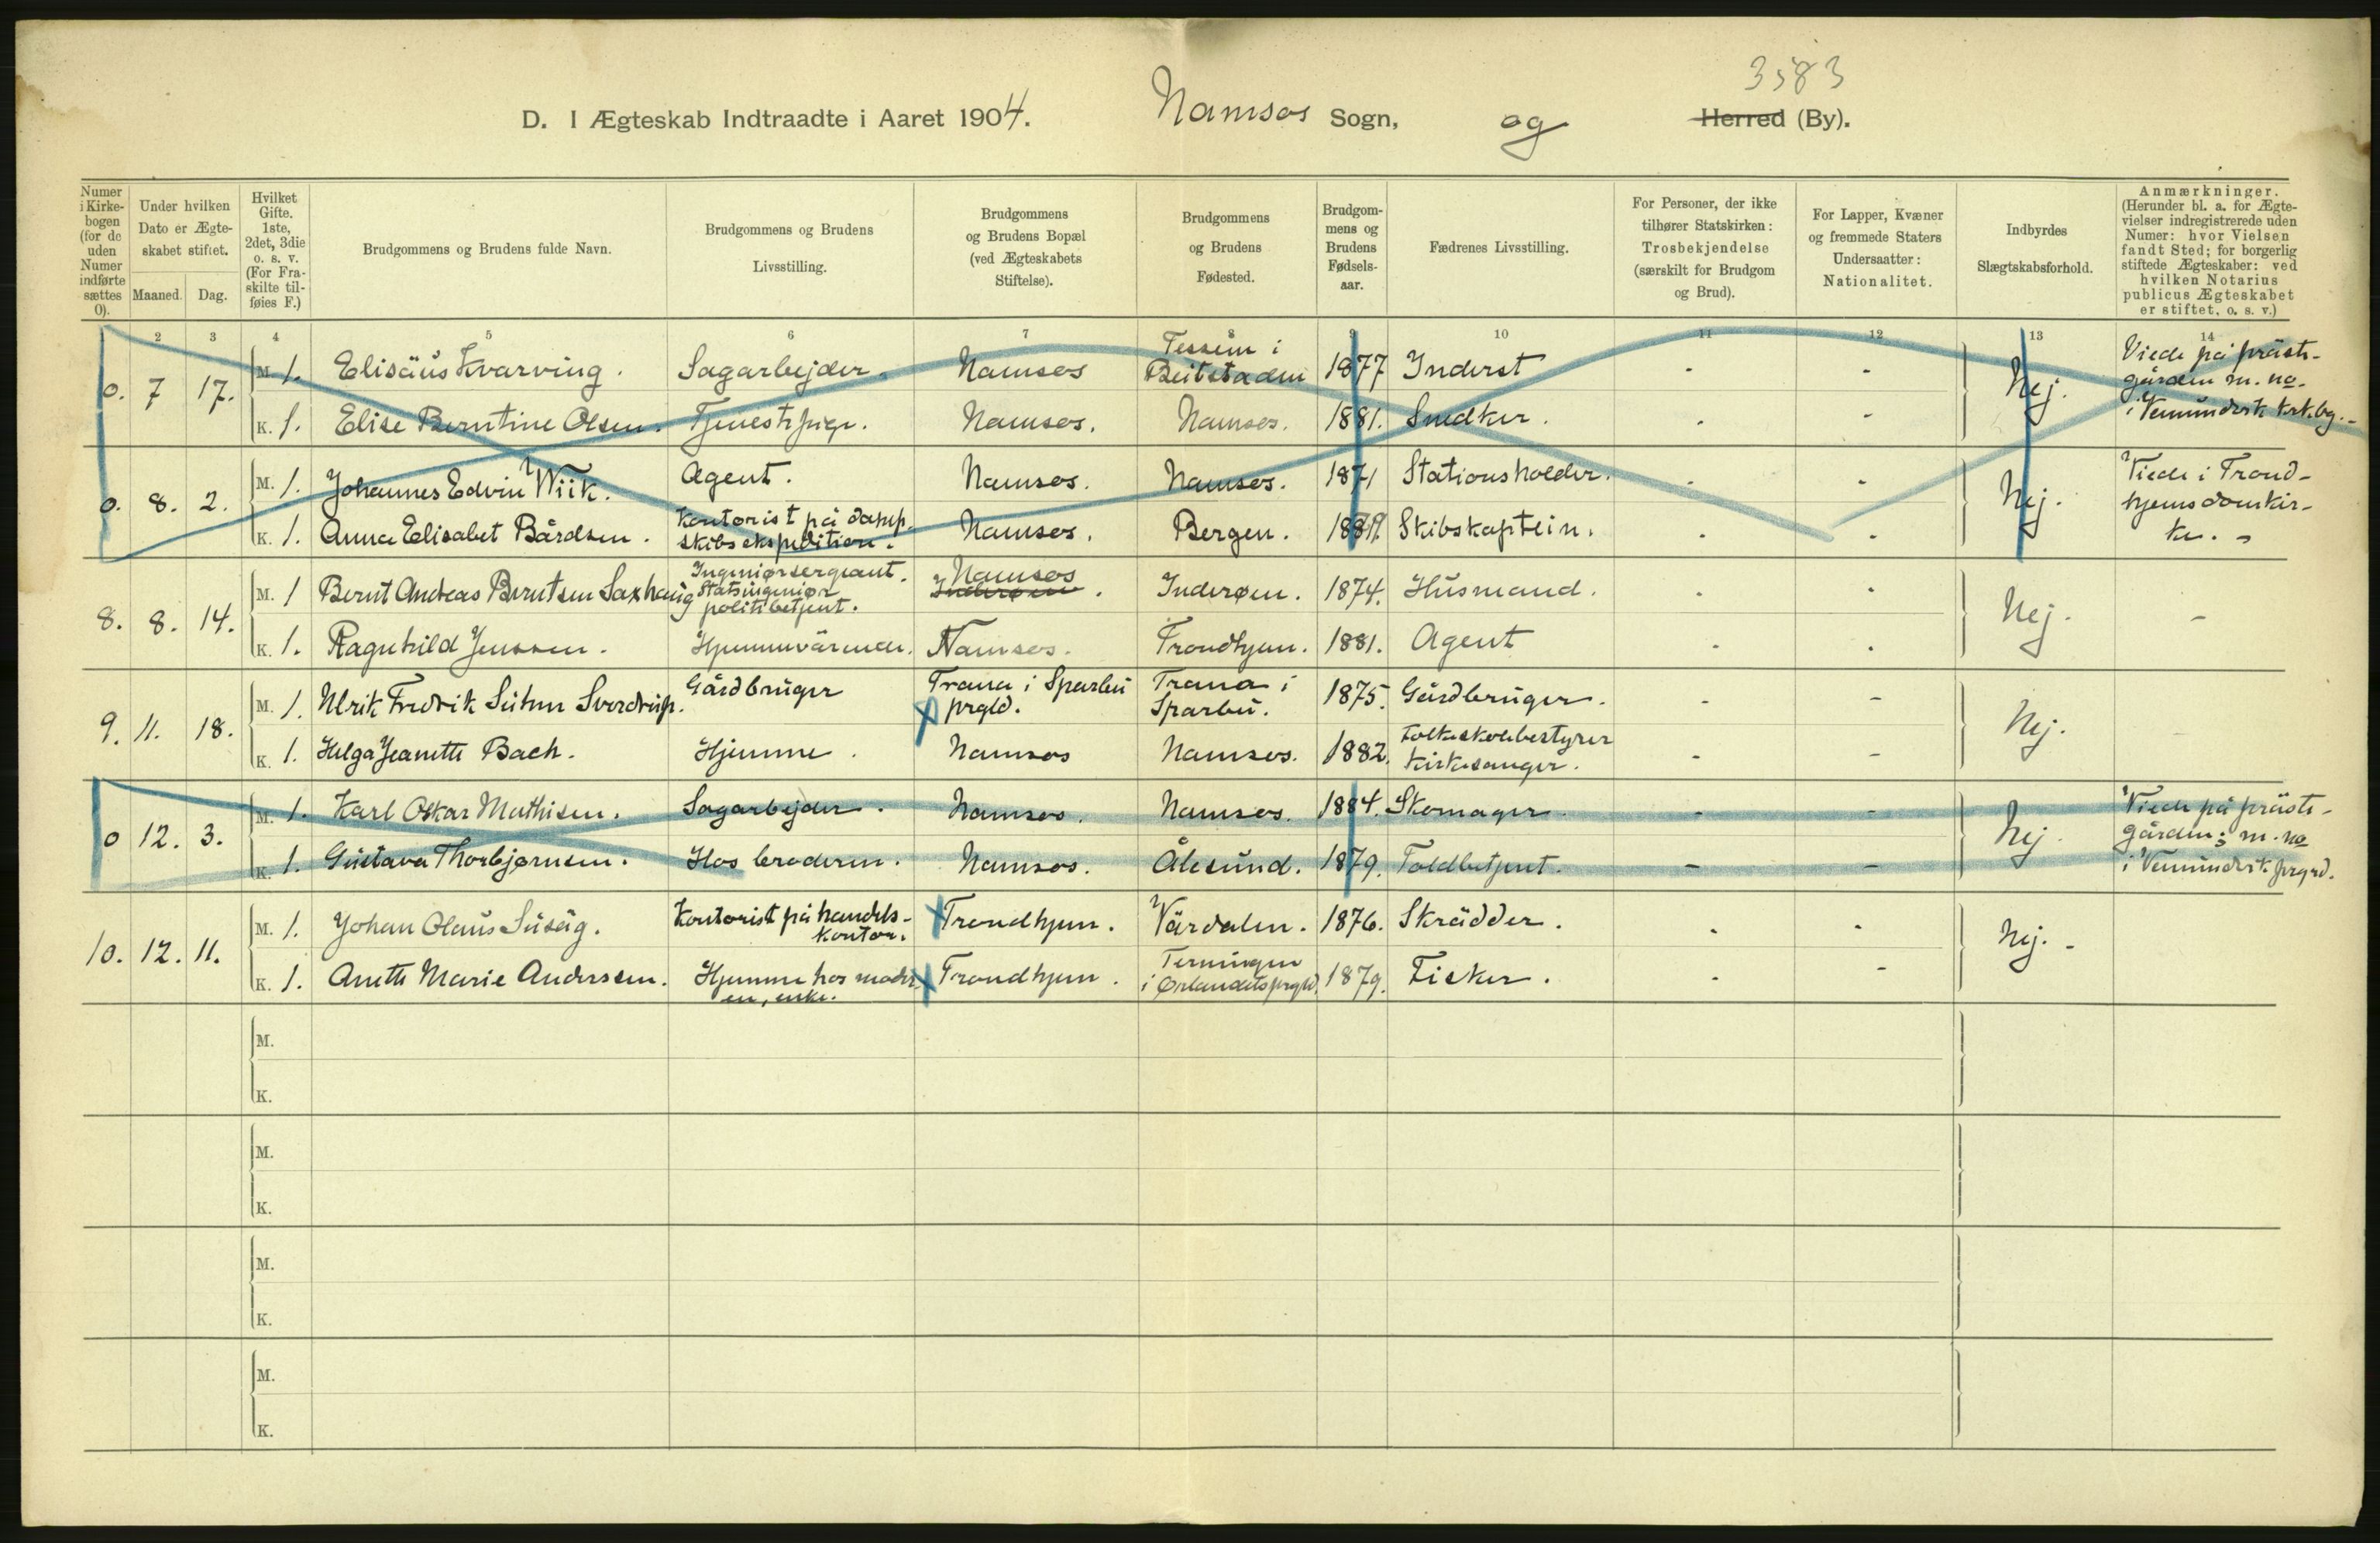 3583
D. I Ægteskab Indtraadte i Aaret 1904. Namsos Sogn, og Herred (By).
Numer i Kirkebogen (for de uden Numer indførte sættes 0).
Under hvilken Dato er Ægteskabet stiftet.
Maaned. Dag.
Hvilket Gifte. 1ste, 2det, 3die o. s. v. (For Fraskilte tilføies F.)
Brudgommens og Brudens fulde Navn.
Brudgommens og Brudens Livsstilling.
Brudgommens og Brudens Bopæl (ved Ægteskabets Stiftelse).
Brudgommens og Brudens Fødested.
Brudgommens og Brudens Fødselsaar.
Fædrenes Livsstilling.
For Personer, der ikke tilhører Statskirken: Trosbekjendelse (særskilt for Brudgom og Brud).
For Lapper, Kvæner og fremmede Staters Undersaatter: Nationalitet.
Indbyrdes Slægtskabsforhold.
Anmærkninger. (Herunder bl. a. for Ægtevielser indregistrerede uden Numer: hvor Vielsen fandt Sted; for borgerlig stiftede Ægteskaber: ved hvilken Notarius publicus Ægteskabet er stiftet, o. s. v.)
2 3 4 5 6 7 8 9 10 11 12 13 14
0. 7 17. M. 1. Elisäus Kvarving. Sagarbejder. Namsos Tessem i Beitstaden 1877 Inderst - - Nej. Viede på præstegården m. no. i Vemundvik kirkbg.
K. 1. Elise Berntine Olsen. Tjenestepige. Namsos. Namsos. 1881. Snedker. - -
0. 8. 2. M. 1. Johannes Edvin Wiik. Agent. Namsos. Namsos. 1871 Stationsholder. - - Nej. Viede i Trondhjems domkirke. -
K. 1. Anna Elisabet Bårdsen. Kontorist på dampskibsekspedition. Namsos. Bergen. Skibskaptein. - -
8. 8. 14. M. 1 Bernt Andreas Berntsen Saxhaug Ingeniørsergeant. Statsingeniør politibetjent. Namsos Inderøen. Inderøen. 1874. Husmand. - - Nej. -
K. 1. Ragnhild Jenssen. Hjemmeværende. Namsos. Trondhjem. 1881. Agent - -
9. 11. 18. M. 1. Ulrik Fredrik Suhm Sverdrup. Gårdbruger Trana i Sparbu prgld. Trana i Sparbu. 1875. Gårdbruger. - - Nej.
K. 1. Helga Jeanette Bach. Hjemme. Namsos Namsos. 1882. Folkeskolebestyrer kirkesanger. - -
0 12. 3. M. 1. Karl Oskar Mathisen. Sagarbejder. Namsos. Namsos. 1884. Skomager. - - Nej. Viede på præstegården; m. no i Vemundvik prgrd.
K. 1. Gustava Thorbjørnsen. Hos broderen. Namsos. Ålesund. 1879. Toldbetjent. - -
10. 12. 11. M. 1. Johan Olaus Susäg. Kontorist på handelskontor. Trondhjem. Värdalen. 1876. Skrädder. - - Nej. -
K. 1. Anette Marie Anderssen. Hjemme hos moderen, enke. Trondhjem. Terningen i Ørlandets prgld. 1879. Fisker. - -
M.
K.
M.
K.
M.
K.
M.
K.